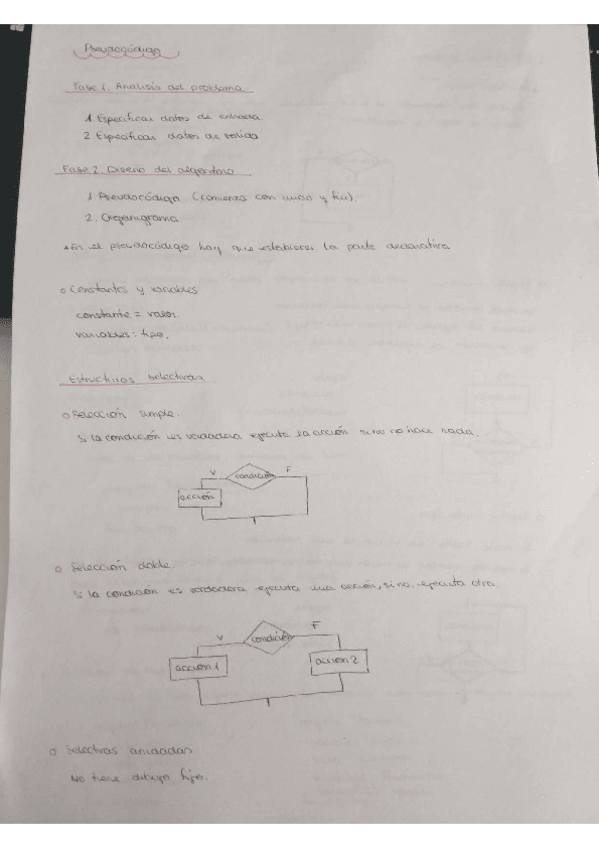 Pseudocódigo
Fase 1. Análisis del problema
1. Especificar datos de entrada
2. Especificar datos de salida
Fase 2. Diseño del algoritmo
1. Pseudocódigo (comienza con inicio y fin).
2. Organigrama
* En el pseudocódigo hay que establecer la parte declarativa
o Constantes y variables
constante = valor.
variables: tipo.
Estructuras selectivas
o Selección simple.
Si la condición es verdadera ejecuta la acción si no no hace nada.
V condición F
acción
o Selección doble.
Si la condición es verdadera ejecuta una acción, si no ejecuta otra.
V condición F
acción 1 acción 2
o Selectivas anidadas
No tiene dibujo fijo.